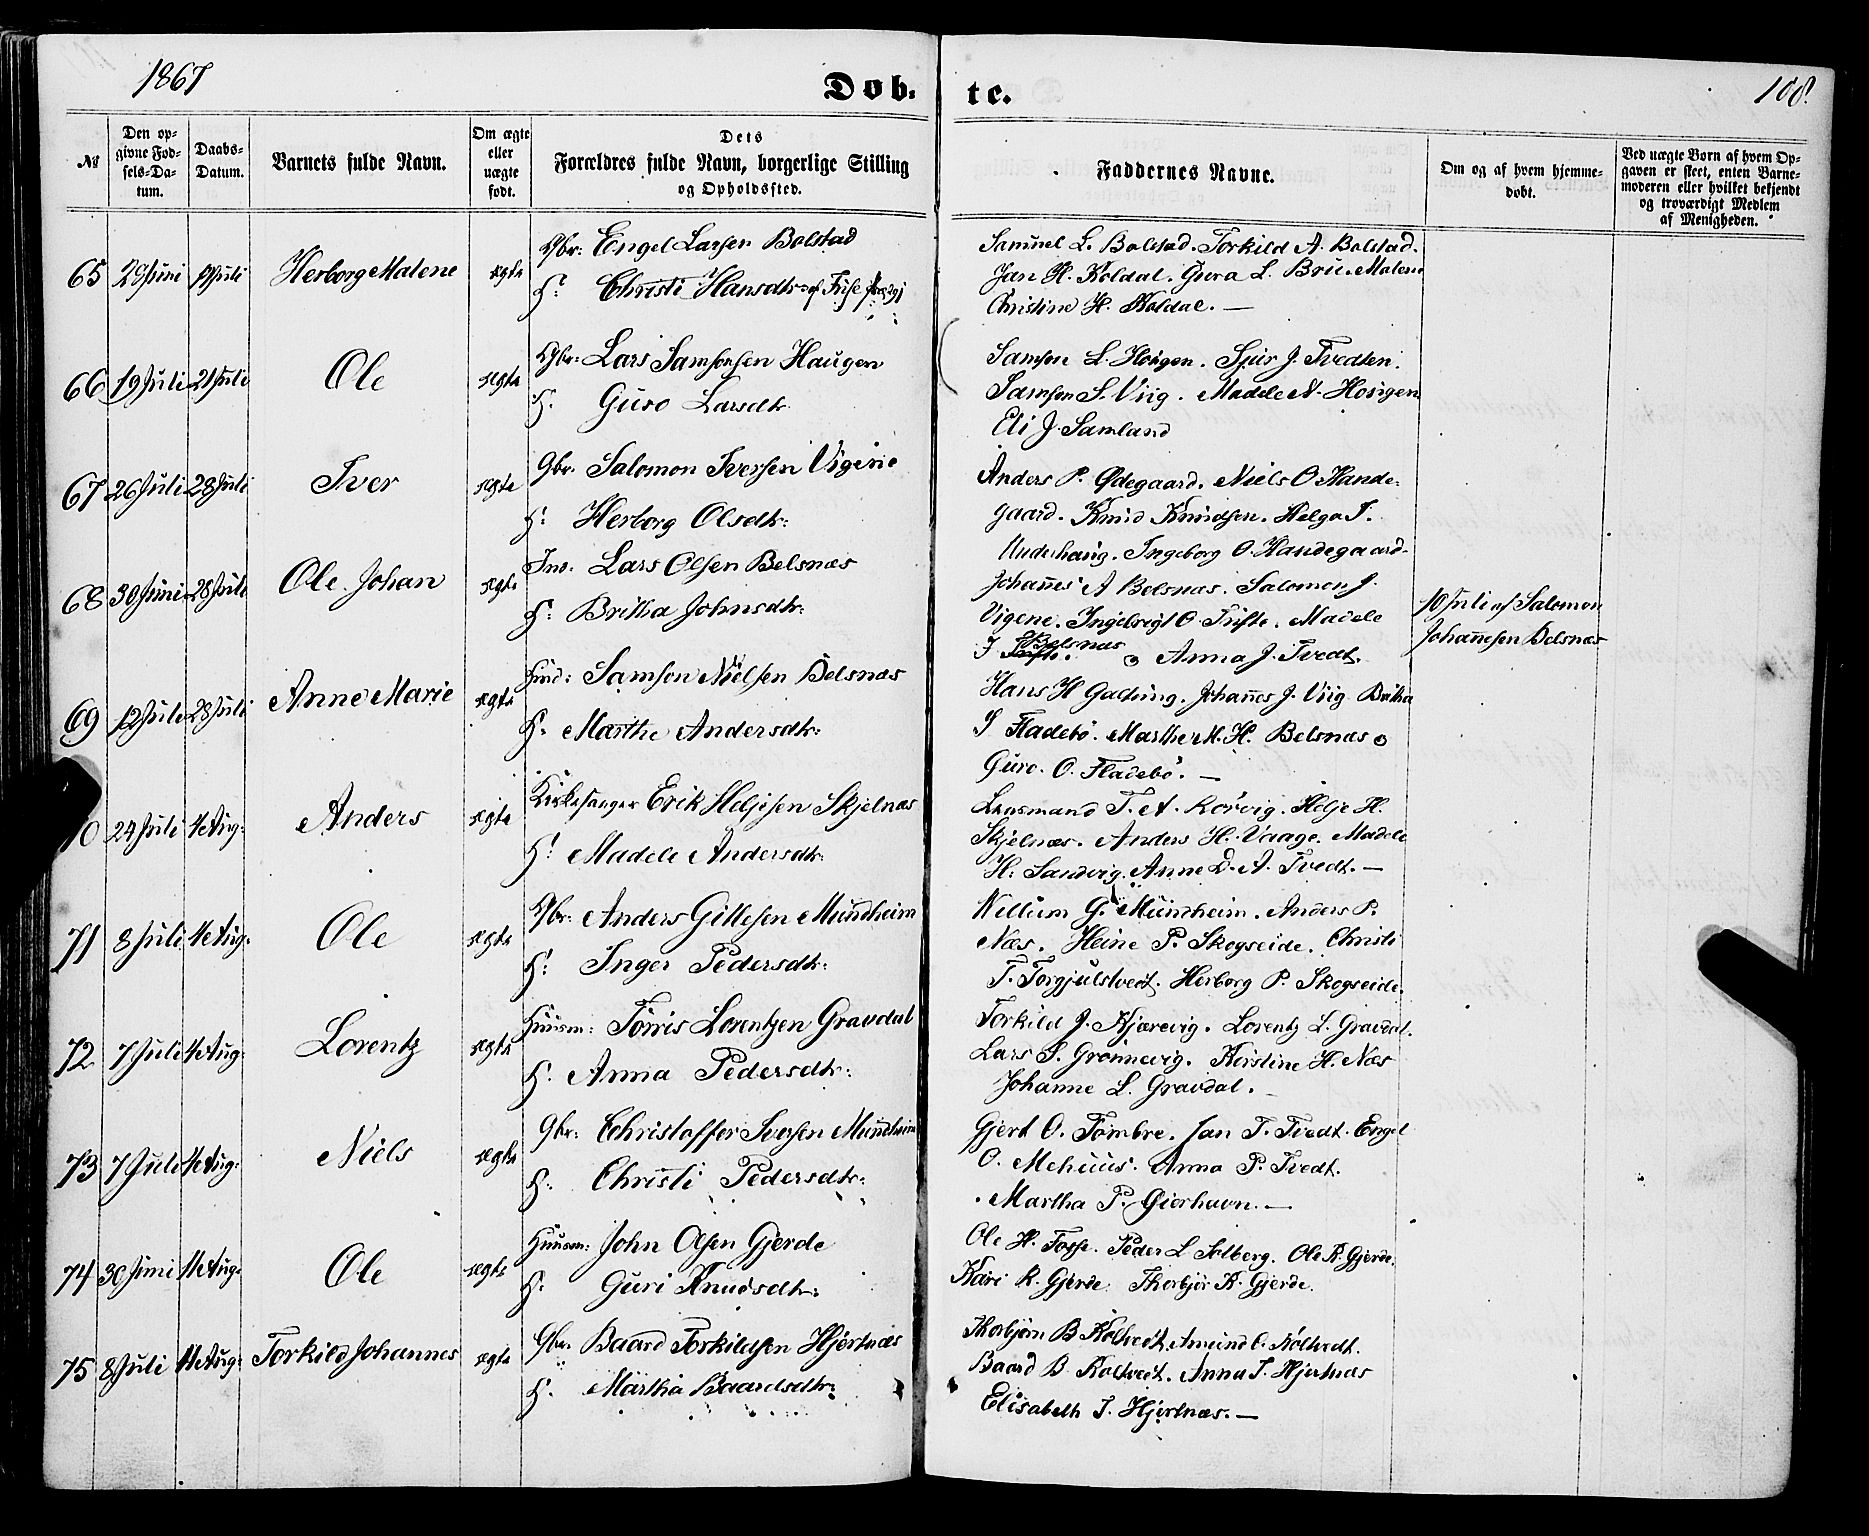 1867
Døb-
te.
108.
No
Den op-
givne Fød-
sels-Da-
tum.
Daabs-
Datum.
Barnets fulde Navn.
Om ægte
eller
uægte
født.
Dets
Forældres fulde Navn, borgerlige Stilling
og Opholdssted.
Faddernes Navne.
Om og af hvem hjemme-
døbt.
Ved uægte Børn af hvem Op-
gaven er skeet, enten Barne-
moderen eller hvilket bekjendt
og troværdigt Medlem
af Menigheden.
65 2 Juni Juli Herborg Malene ægte Gbr: Engel Larsen Bolstad
H: Christi Hansdtr: af
Samuel L. Bolstad. Torkild A. Bolstad.
Jan H. Koldal. Gura L. Bru. Malene
Christine H. Koldal. —
66 19 Juli 21 Juli Ole ægte Gbr: Lars Samsonsen Haugen
H. Guro Larsdtr.
Samson L. Hougen. Sjur J. Tvedten.
Samson S. Viig. Madele N. Hougen
Eli J. Samland
67 26 Juli 28 Juli Iver ægte Gbr. Salomon Iversen Vigene
H: Herborg Olsdtr:
Anders P. Ødegaard. Niels O Hande-
gaard. Knud Knudsen. Helga I.
Underhaug. Ingeborg O. Handegaard.
68 30 Juni 28 Juli Ole Johan ægte Ins. Lars Olsen Belsnæs
H: Britha Johnsdtr:
Johannes A Belsnæs. Salomon J.
Vigene. Ingebrigt O. Tufte. Madele
I Belsnæs o Anna J. Tvedt.
10 Juli af Salomon
Johannesen Belsnæs
69 12 Juli 28 Juli Anne Marie ægte Huus: Samson Nielsen Belsnæs
H. Marthe Andersdtr:
Hans H Gading. Johannes J. Viig. Britha
S Fladebö. Marthe M. H. Belsnæs o
Guro. O. Fladebö. —
0 24 Juli 4 Aug: Anders ægte Kirkesanger Erik Heljesen Skjelnæs
H: Madele Andersdtr:
Lensmand T. A. Rörvig. Helje H.
Skjelnæs. Anders H. Vaage. Madele
H. Sandvig. Anne D. A. Tvedt. —
71 8 Juli 4 Aug: Ole ægte Gbr: Anders Gitlesen Mundheim
H: Inger Pedersdtr:
Villum G. Mundheim. Anders P.
Næs. Heine P. Skogseide. Christi
T. Torgjulstvedt. Herborg P. Skogseide.
72 7 Juli 4 Aug: Lorentz ægte Huusm: Törris Lorentzen Gravdal
H. Anna Pedersdtr:
Torkild J. Kjærevig. Lorentz L. Gravdal.
Lars S. Grönnevig. Kirstine H. Næs
Johanne L. Gravdal.
73 7 Juli 4 Aug: Niels ægte Gbr: Christoffer Iversen Mundheim
H: Christi Pedersdtr:
Gjert O. Tombre. Jan T. Tvedt. Engel
O. Mehuus. Anna P. Tvedt.
Martha P. Gierhavn. —
74 30 Juni 11 Aug: Ole ægte Huusm: John Olsen Gjerde
H: Guri Knudsdtr:
Ole H. Fosse. Peder L Solberg. Ole K. Gjerde.
Kari K. Gjerde. Thorbjör K. Gjerde.
75 8 Juli 11 Aug: Torkild Johannes ægte Gbr. Baard Torkildsen Hjörtnæs
H. Martha Baardsdtr:
Thorbjörn B Koltvedt. Amund O. Koltvedt.
Baard B Koltvedt. Anna T. Hjertnæs
Elisabeth T. Hjertnæs. —